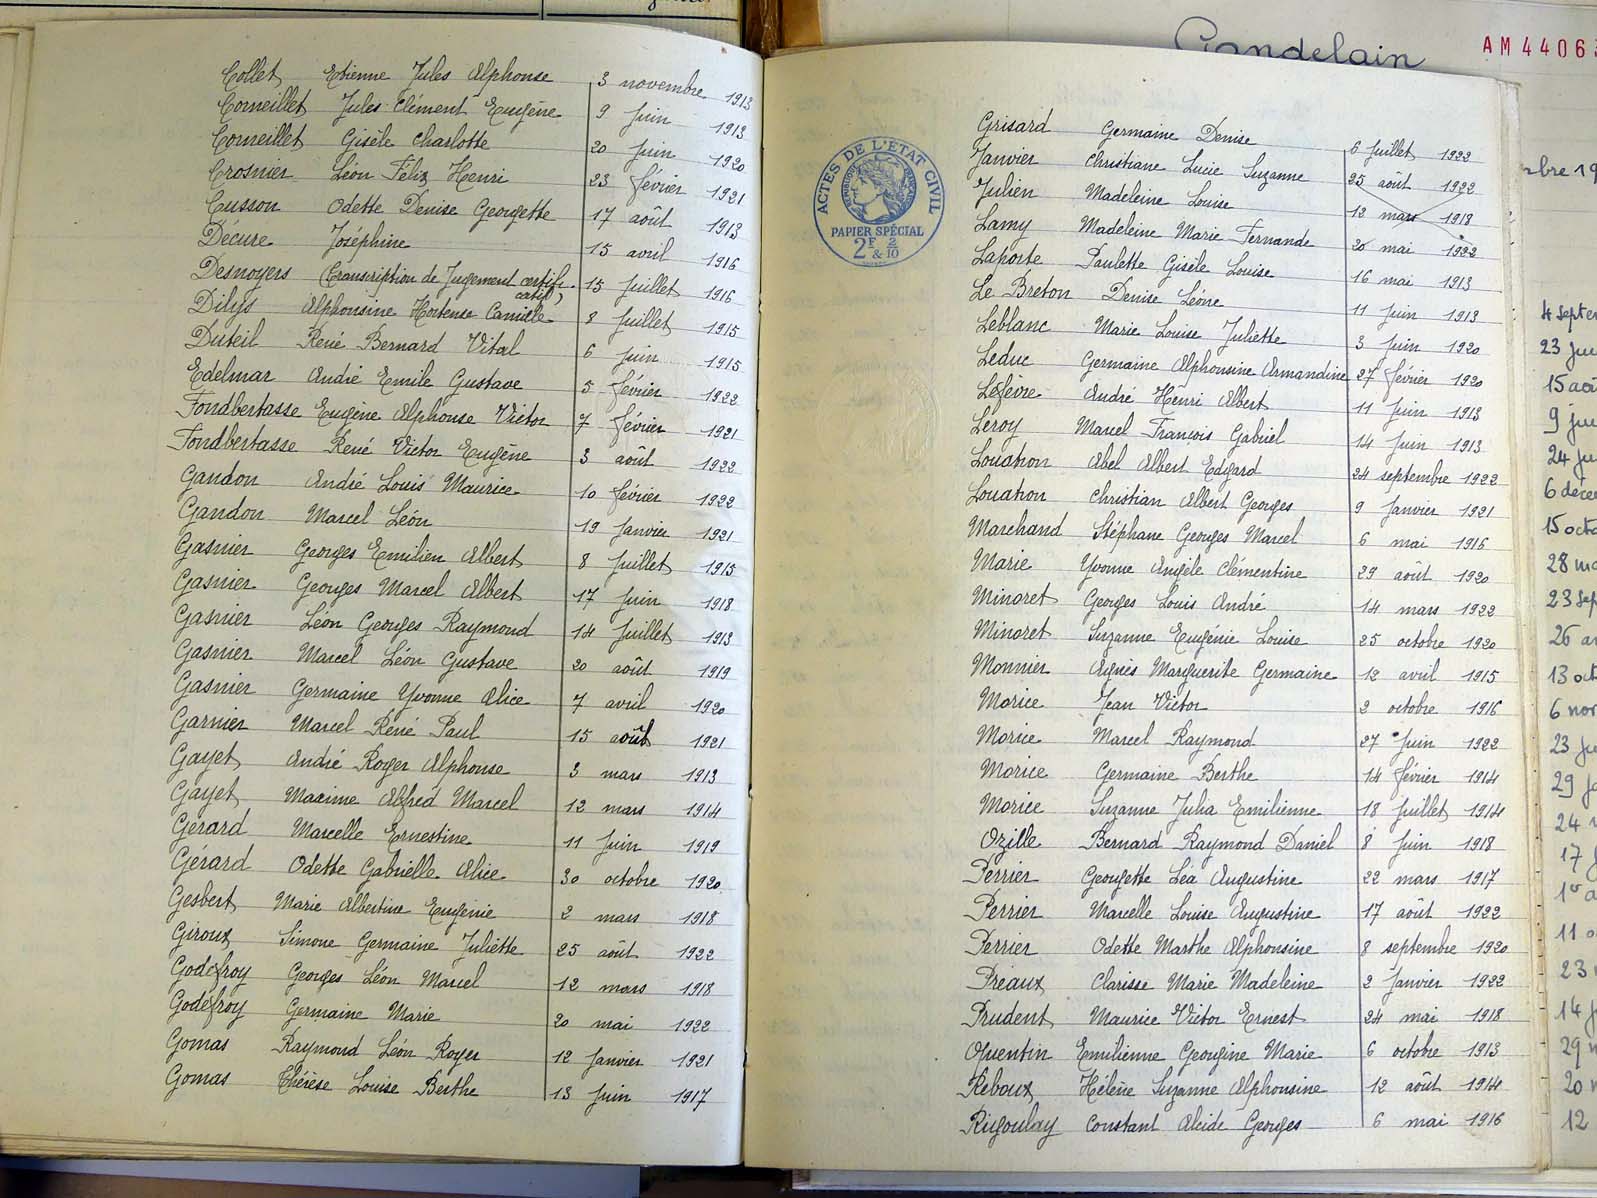 Collet Etienne Jules Alphonse 3 novembre 1913
Corneillet Jules Clément Eugène 9 Juin 1913
Corneillet Gisèle Charlotte 20 Juin 1920
Crosnier Léon Félix Henri 23 février 1921
Cusson Odette Denise Georgette 17 août 1913
Decure Joséphine 15 avril 1916
Desnoyers Transcription de Jugement 15 Juillet 1916
Dilys Alphonsine Hortense Camille 8 Juillet 1915
Duteil René Bernard Vital 6 Juin 1915
Edelmar André Emile Gustave 5 février 1922
Fondbertasse Eugène Alphonse Victor 7 février 1921
Fondbertasse René Victor Eugène 3 août 1922
Gandon André Louis Maurice 10 février 1922
Gandon Marcel Léon 19 Janvier 1921
Gasnier Georges Emilien Albert 8 Juillet 1915
Gasnier Georges Marcel Albert 17 Juin 1918
Gasnier Léon Georges Raymond 14 Juillet 1913
Gasnier Marcel Léon Gustave 20 août 1919
Gasnier Germaine Yvonne Alice 7 avril 1920
Garnier Marcel René Paul 15 août 1921
Gayet André Roger Alphonse 3 mars 1913
Gayet Maxime Alfred Marcel 12 mars 1914
Gérard Marcelle Ernestine 11 Juin 1919
Gérard Odette Gabrielle Alice 30 octobre 1920
Gesbert Marie Albertine Eugénie 2 mars 1918
Giroux Simone Germaine Juliette 25 août 1922
Godefroy Georges Léon Marcel 12 mars 1918
Godefroy Germaine Marie 20 mai 1922
Gomas Raymond Léon Roger 12 Janvier 1921
Gomas Thérèse Louise Berthe 13 Juin 1917
Gandelain
AM 4406
ACTES DE L'ÉTAT CIVIL
PAPIER SPÉCIAL
2F & 2/10
Grisard Germaine Denise 6 Juillet 1922
Janvier Christiane Lucie Suzanne 25 août 1922
Julien Madeleine Louise 12 mars 1918
Lamy Madeleine Marie Fernande 20 mai 1922
Laporte Paulette Gisèle Louise 16 mai 1913
Le Breton Denise Léone 11 Juin 1913
Leblanc Marie Louise Juliette 3 Juin 1920
Leduc Germaine Alphonsine Armandine 27 février 1920
Lefevre André Henri Albert 11 Juin 1913
Leroy Marcel François Gabriel 14 Juin 1913
Louatron Abel Albert Edgard 24 septembre 1922
Louatron Christian Albert Georges 9 Janvier 1921
Marchand Stéphane Georges Marcel 6 mai 1916
Marie Yvonne Angèle Clémentine 29 août 1920
Minoret Georges Louis André 14 mars 1922
Minoret Suzanne Eugénie Louise 25 octobre 1920
Monnier Agnès Marguerite Germaine 12 avril 1915
Morice Jean Victor 2 octobre 1916
Morice Marcel Raymond 27 Juin 1922
Morice Germaine Berthe 14 février 1914
Morice Suzanne Julia Emilienne 18 Juillet 1914
Ozille Bernard Raymond Daniel 8 Juin 1918
Perrier Georgette Léa Augustine 22 mars 1917
Perrier Marcelle Louise Augustine 17 août 1922
Perrier Odette Marthe Alphonsine 8 septembre 1920
Préaux Clarisse Marie Madeleine 2 Janvier 1922
Prudent Maurice Victor Ernest 24 mai 1918
Quentin Emilienne Georgine Marie 6 octobre 1913
Reboux Hélène Suzanne Alphonsine 12 août 1914
Rigoulay Constant Alcide Georges 6 mai 1916